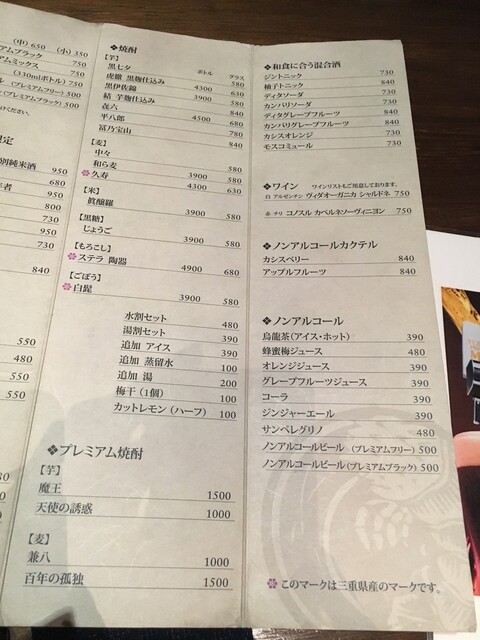 (中) 650 (小) 350
アムブラック 750
アムミックス 750
(330mlボトル) 750
(プレミアムフリー) 500
(プレミアムブラック) 500
限定
別純米酒 950
680
950
800
730
730
840
550
480
550
550
❖焼酎
【芋】 ボトル グラス
黒七夕 580
虎徹 黒麹仕込み 4300 630
黒伊佐錦 3900 580
結 芋麹仕込み 580
㐂六 840
平八郎 4500 680
富乃宝山 780
【麦】
中々 840
和ら麦 580
久寿 3900 580
【米】 4300 630
眞醸羅
【黒糖】 3900 580
じょうご
【もろこし】 3900 580
ステラ 陶器
【ごぼう】 4900 680
白髭
3900 580
水割セット 480
湯割セット 390
追加 アイス 390
追加 蒸留水 100
追加 湯 200
梅干(1個) 100
カットレモン(ハーフ) 100
❖プレミアム焼酎
【芋】
魔王 1500
天使の誘惑 1000
【麦】
兼八 1000
百年の孤独 1500
❖和食に合う混合酒
ジントニック 730
柚子トニック 840
ディタソーダ 730
カンパリソーダ 730
ディタグレープフルーツ 840
カンパリグレープフルーツ 840
カシスオレンジ 730
モスコミュール 730
❖ワイン ワインリストもご用意しております。
白 アルゼンチン ヴィダオーガニカ シャルドネ 750
赤 チリ コノスル カベルネソーヴィニヨン 750
❖ノンアルコールカクテル
カシスベリー 840
アップルフルーツ 840
❖ノンアルコール
烏龍茶(アイス・ホット) 390
蜂蜜梅ジュース 480
オレンジジュース 390
グレープフルーツジュース 390
コーラ 390
ジンジャーエール 390
サンペレグリノ 480
ノンアルコールビール (プレミアムフリー) 500
ノンアルコールビール(プレミアムブラック) 500
このマークは三重県産のマークです。